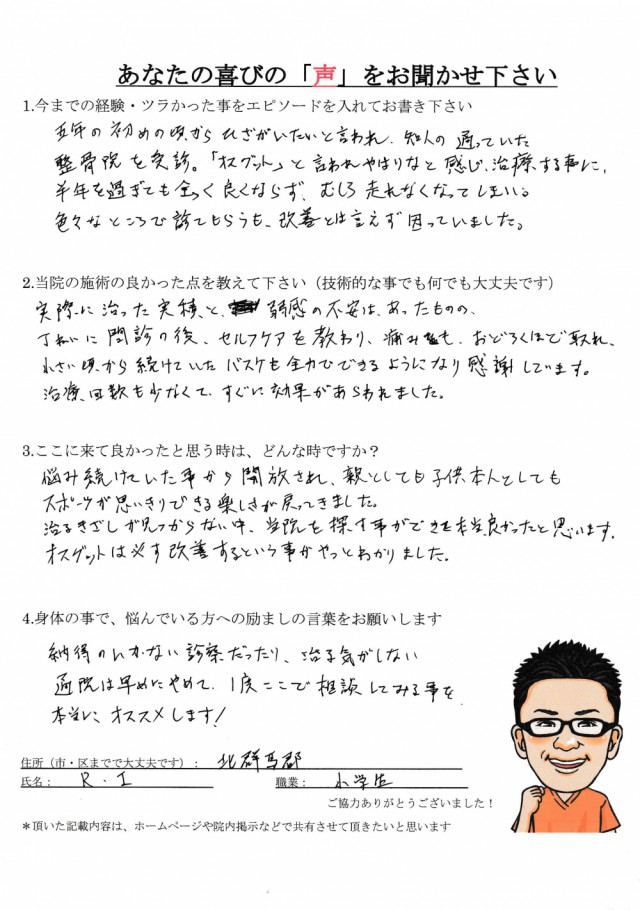 あなたの喜びの「声」をお聞かせ下さい
1.今までの経験・ツラかった事をエピソードを入れてお書き下さい
五年の初めの頃からひざがいたいと言われ、知人の通っていた
整骨院を受診。「オスグット」と言われやはりなと感じ、治療する事に、
半年を過ぎても全っく良くならず、むしろ走れなくなってしまい。
色々なところで診てもらうも、改善とは言えず困っていました。
2.当院の施術の良かった点を教えて下さい（技術的な事でも何でも大丈夫です）
実際に治った実積と、弱感の不安は、あったものの、
丁ねいに問診の後、セルフケアを教わり、痛みも、おどろくほど取れ、
小さい頃から続けていたバスケも全力でできるようになり感謝しています。
治療回数も少なくて、すぐに効果があらわれました。
3.ここに来て良かったと思う時は、どんな時ですか？
悩み続けていた事から開放され、親としても子供本人としても
スポーツが思いきりできる楽しさが戻ってきました。
治るきざしが見つからない中、当院を探す事ができ本当良かったと思います。
オスグットは必ず改善するという事がやっとわかりました。
4.身体の事で、悩んでいる方への励ましの言葉をお願いします
納得のいかない診察だったり、治る気がしない
通院は早めにやめて、1度ここで相談してみる事を
本当にオススメします！
住所（市・区までで大丈夫です）： 北群馬郡
氏名： R．I 職業： 小学生
ご協力ありがとうございました！
＊頂いた記載内容は、ホームページや院内掲示などで共有させて頂きたいと思います